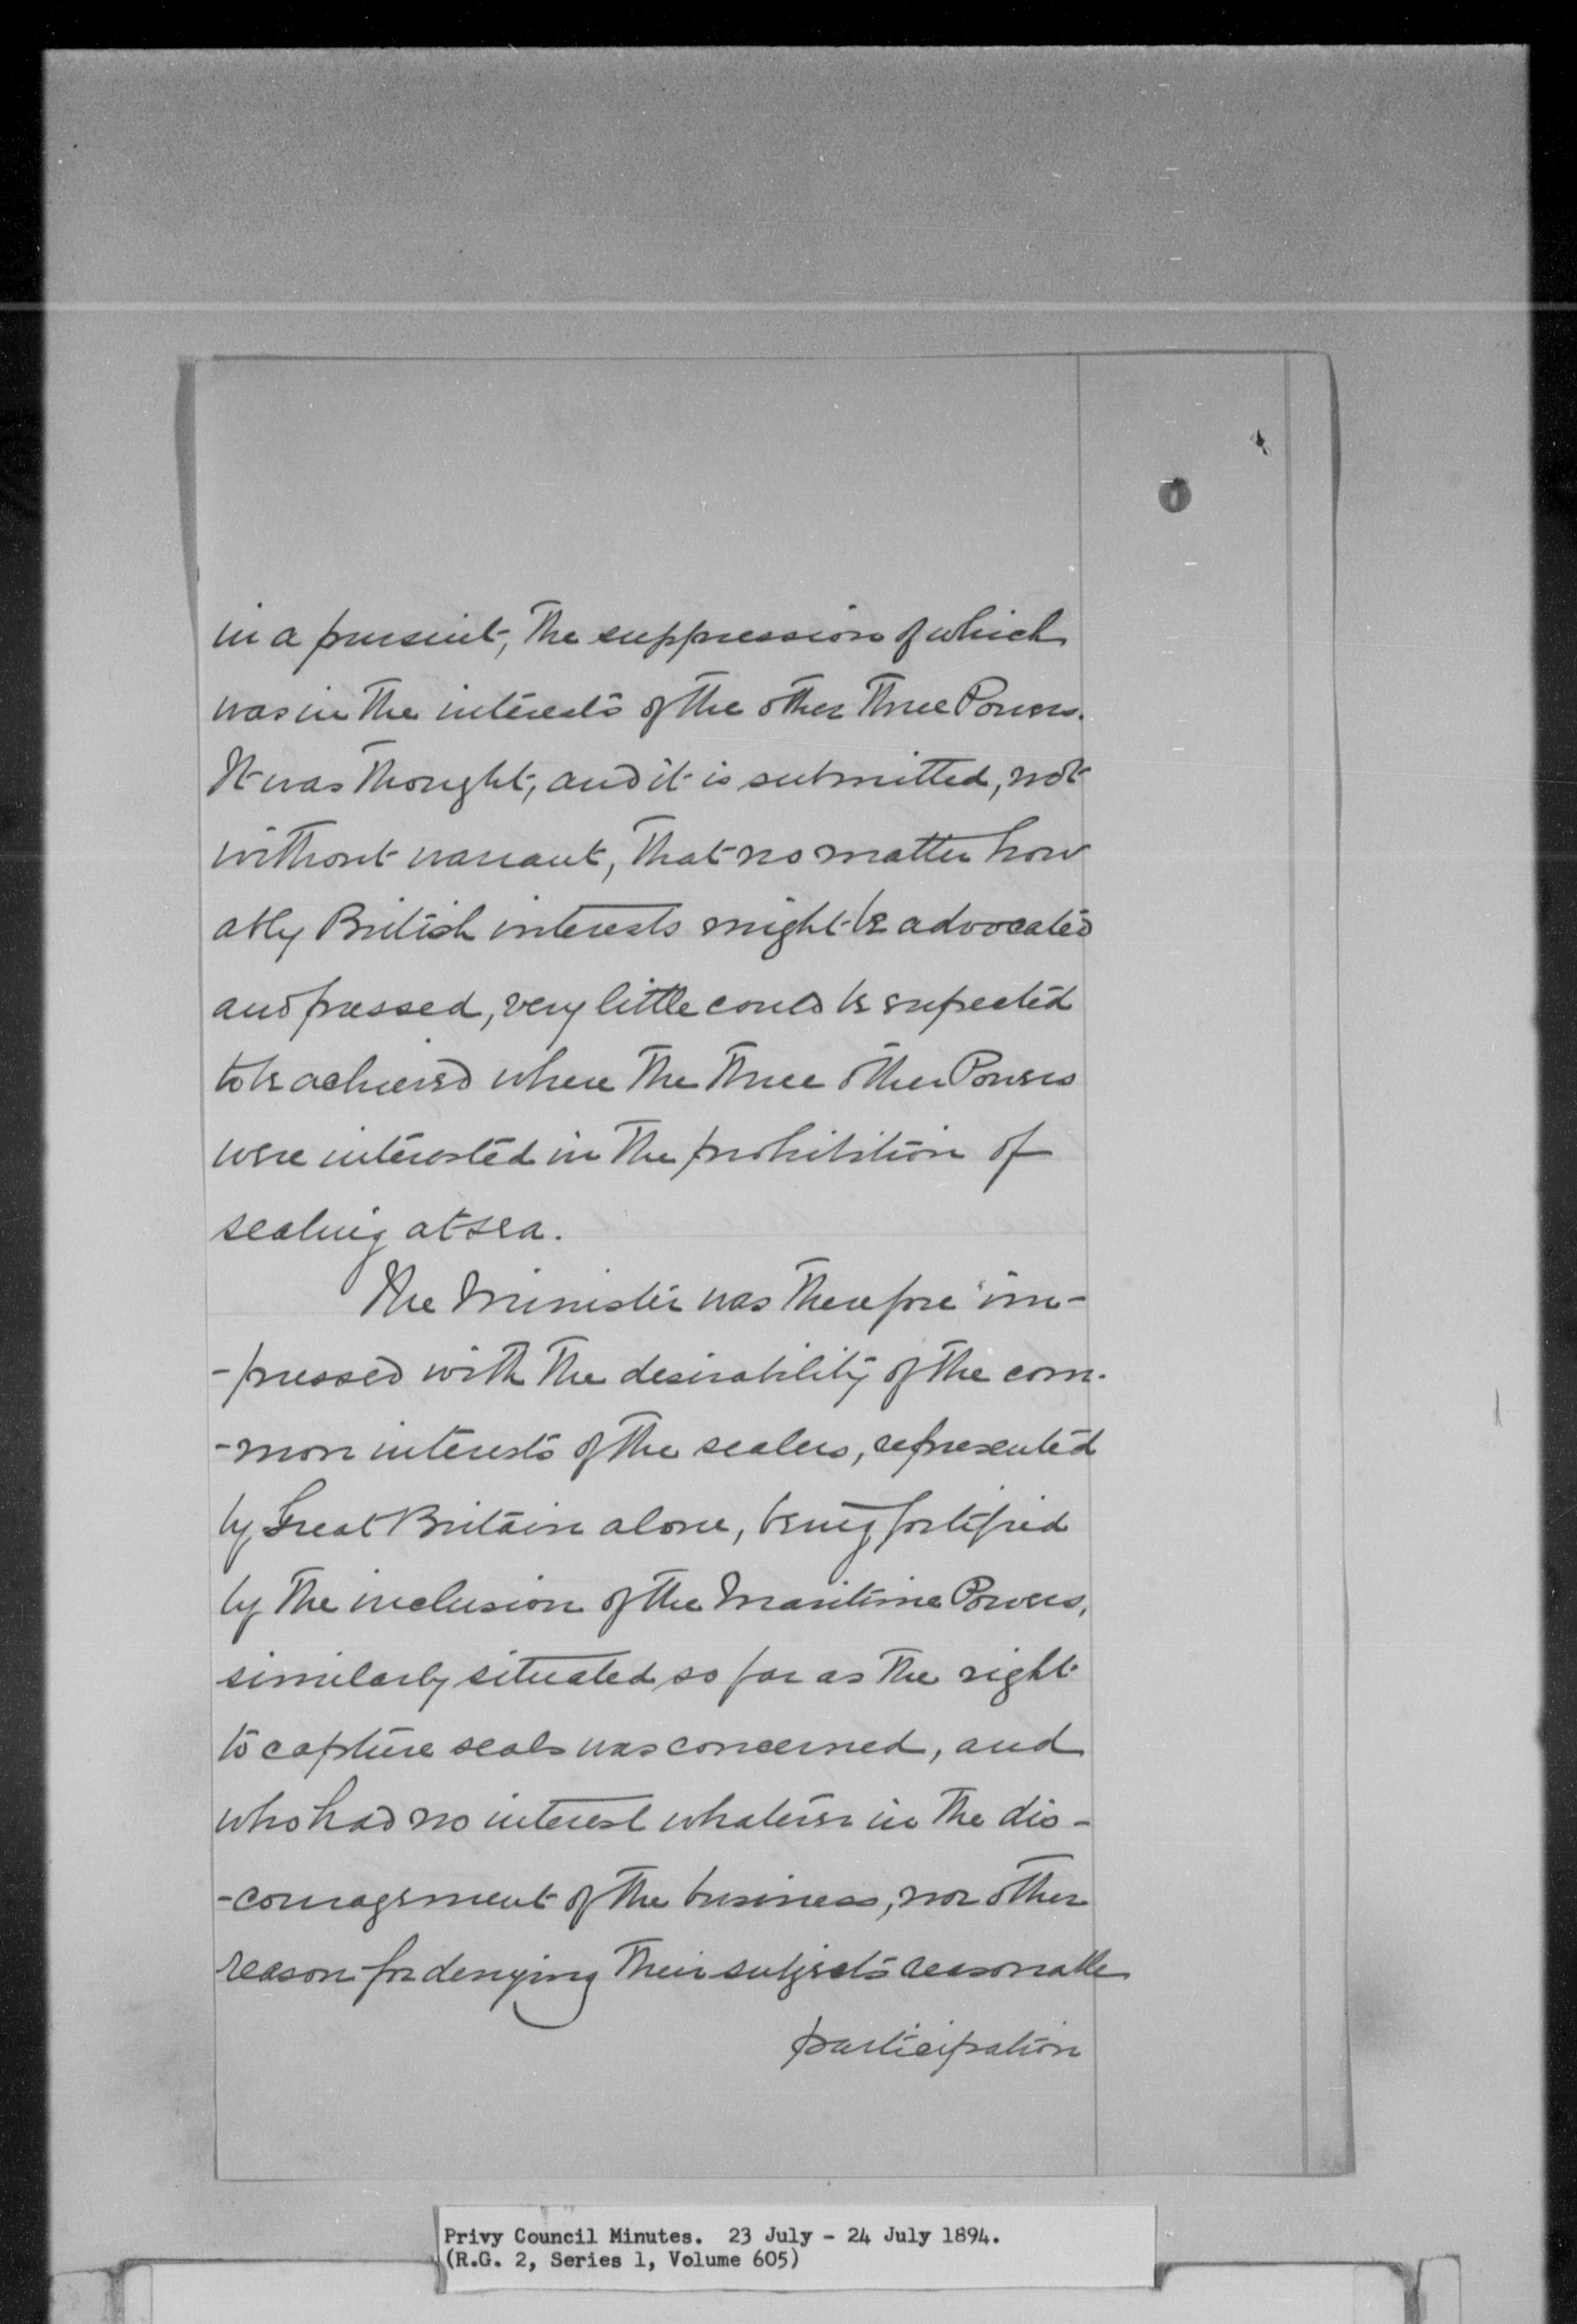 in a pursuit, the suppression of which
was in the interests of the other three Powers.
It was thought, and it is submitted, not
without warrant, that no matter how
ably British interests might be advocated
and pressed, very little could be expected
to be achieved where the three other Powers
were interested in the prohibition of
sealing at sea.
The Minister was therefore im-
-pressed with the desirability of the com-
-mon interests of the sealers, represented
by Great Britain alone, being fortified
by the inclusion of the Maritime Powers,
similarly situated so far as the right
to capture seals was concerned, and
who had no interest whatever in the dis-
-couragement of the business, nor other
reason for denying their subjects reasonable
participation
Privy Council Minutes. 23 July - 24 July 1894.
(R.G. 2, Series 1, Volume 605)